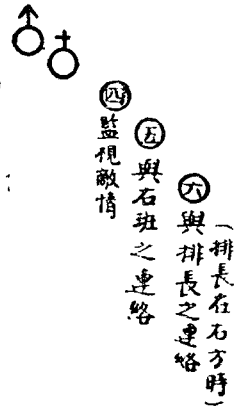 ㊃監視敵情
㊄與右班之連絡
㊅與排長之連絡
(排長在右方時)